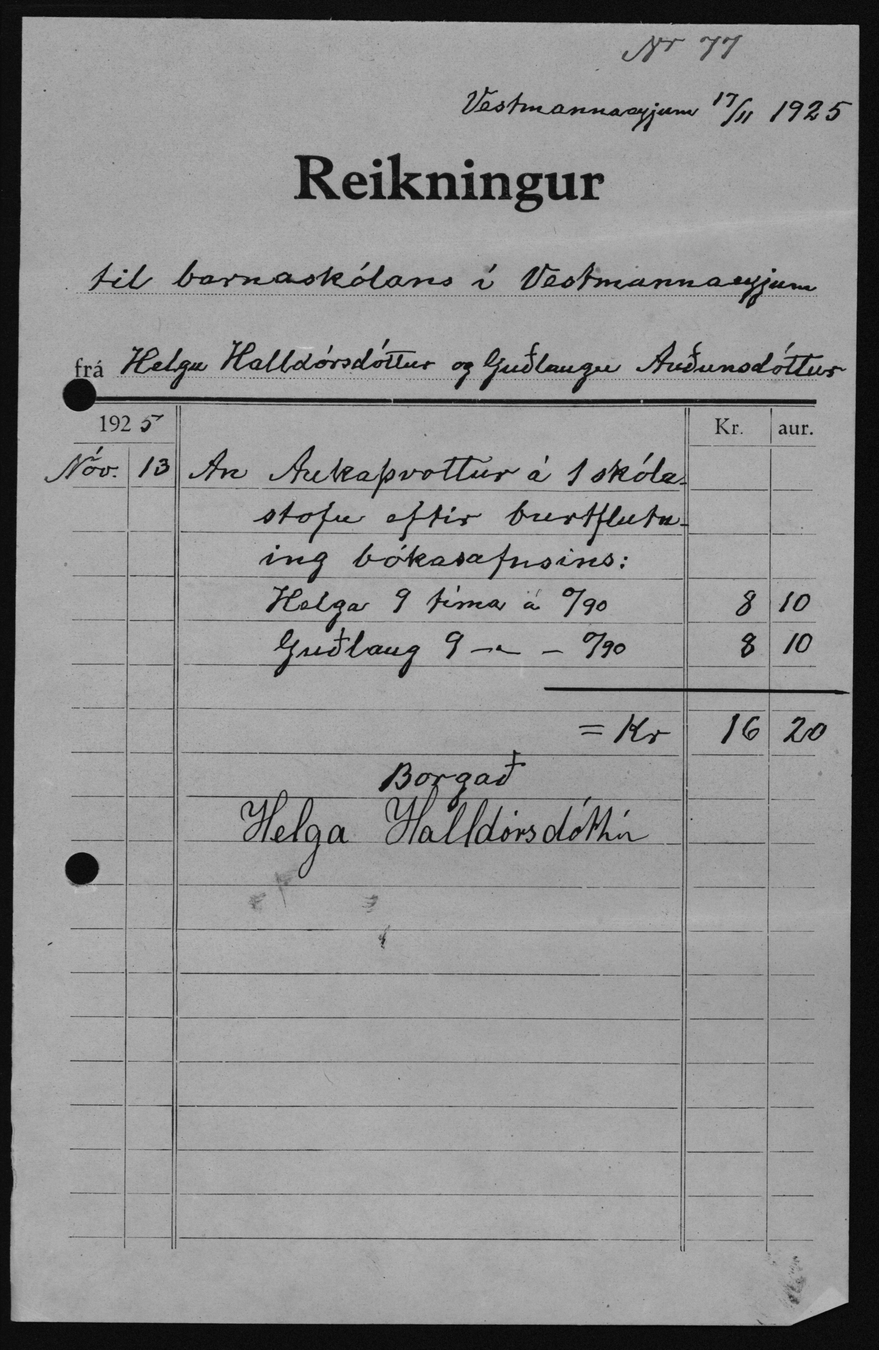 Nr 77
Vestmannaeyjum 17/11 1925
Reikningur
til barnaskólans í Vestmannaeyjum
frá Helgu Halldórsdóttur og Guðlaugu Auðunsdóttur
1925 Kr. aur.
Nóv. 13 An Aukaþvottur á 1 skóla-
stofu eftir burtflutn-
ing bókasafnsins:
Helga 9 tíma á 0/90 8 10
Guðlaug 9 -"- - 0/90 8 10
= Kr 16 20
Borgað
Helga Halldórsdóttir